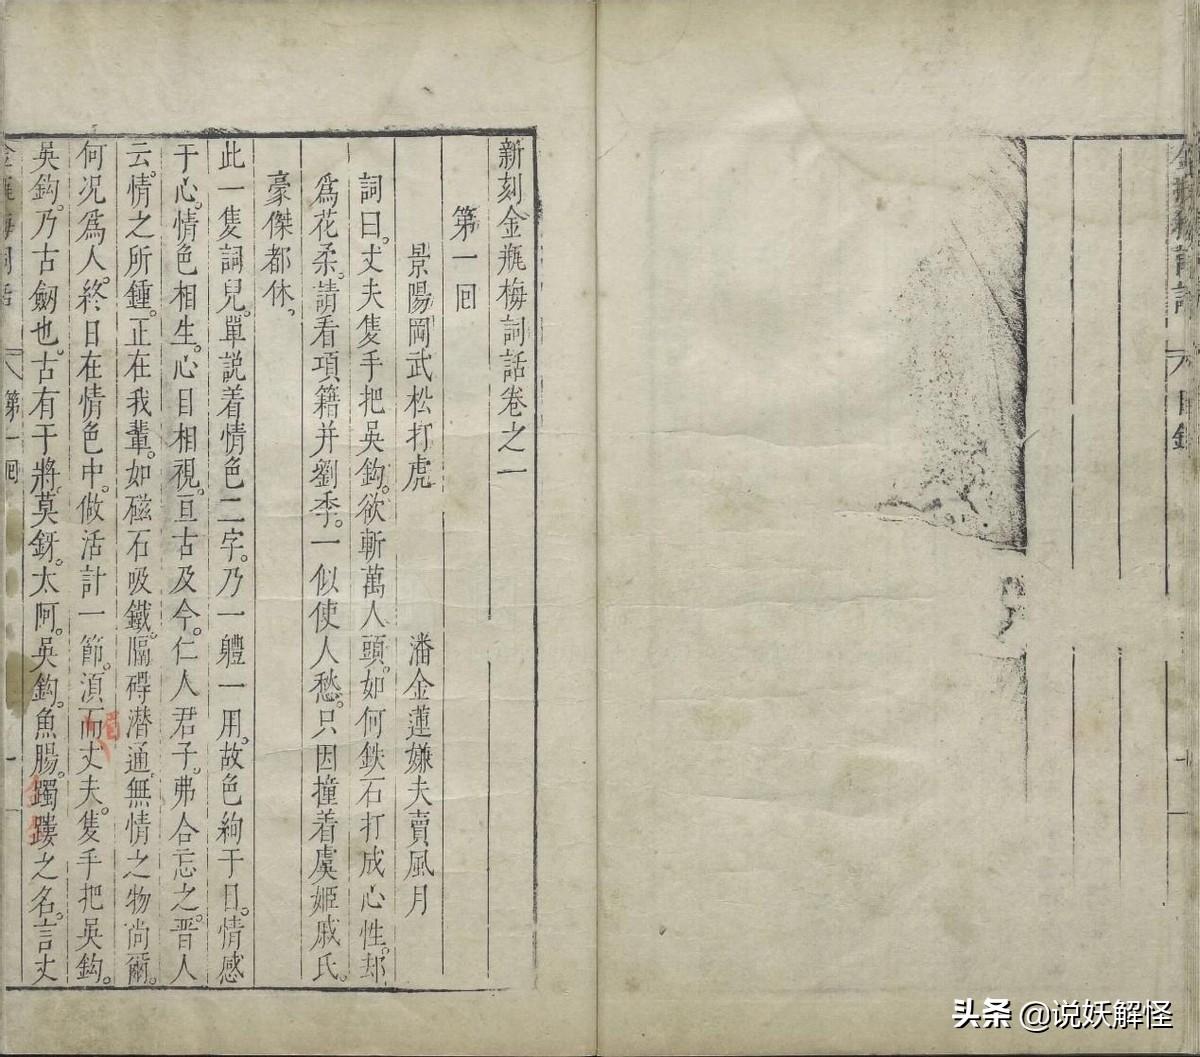 新刻金瓶梅詞話卷之一
第一回
景陽岡武松打虎　潘金蓮嫌夫賣風月
詞曰。丈夫隻手把吳鈎。欲斬萬人頭。如何鉄石打成心性。却
爲花柔。請看項籍并劉季。一似使人愁。只因撞着虞姬戚氏。
豪傑都休。
此一隻詞兒。單説着情色二字。乃一軆一用。故色絢于目。情感
于心。情色相生。心目相視。亘古及今。仁人君子。弗合忘之。晋人
云。情之所鍾。正在我輩。如磁石吸鐵。隔碍潜通。無情之物尚爾。
何况爲人。終日在情色中。做活計一節。須而丈夫。隻手把吳鈎。
吳鈎。乃古劒也。古有干將。莫鋣。太阿。吳鈎。魚腸。躅𨇾之名。言丈
金瓶梅詞話　第一回　一
头条 @说妖解怪